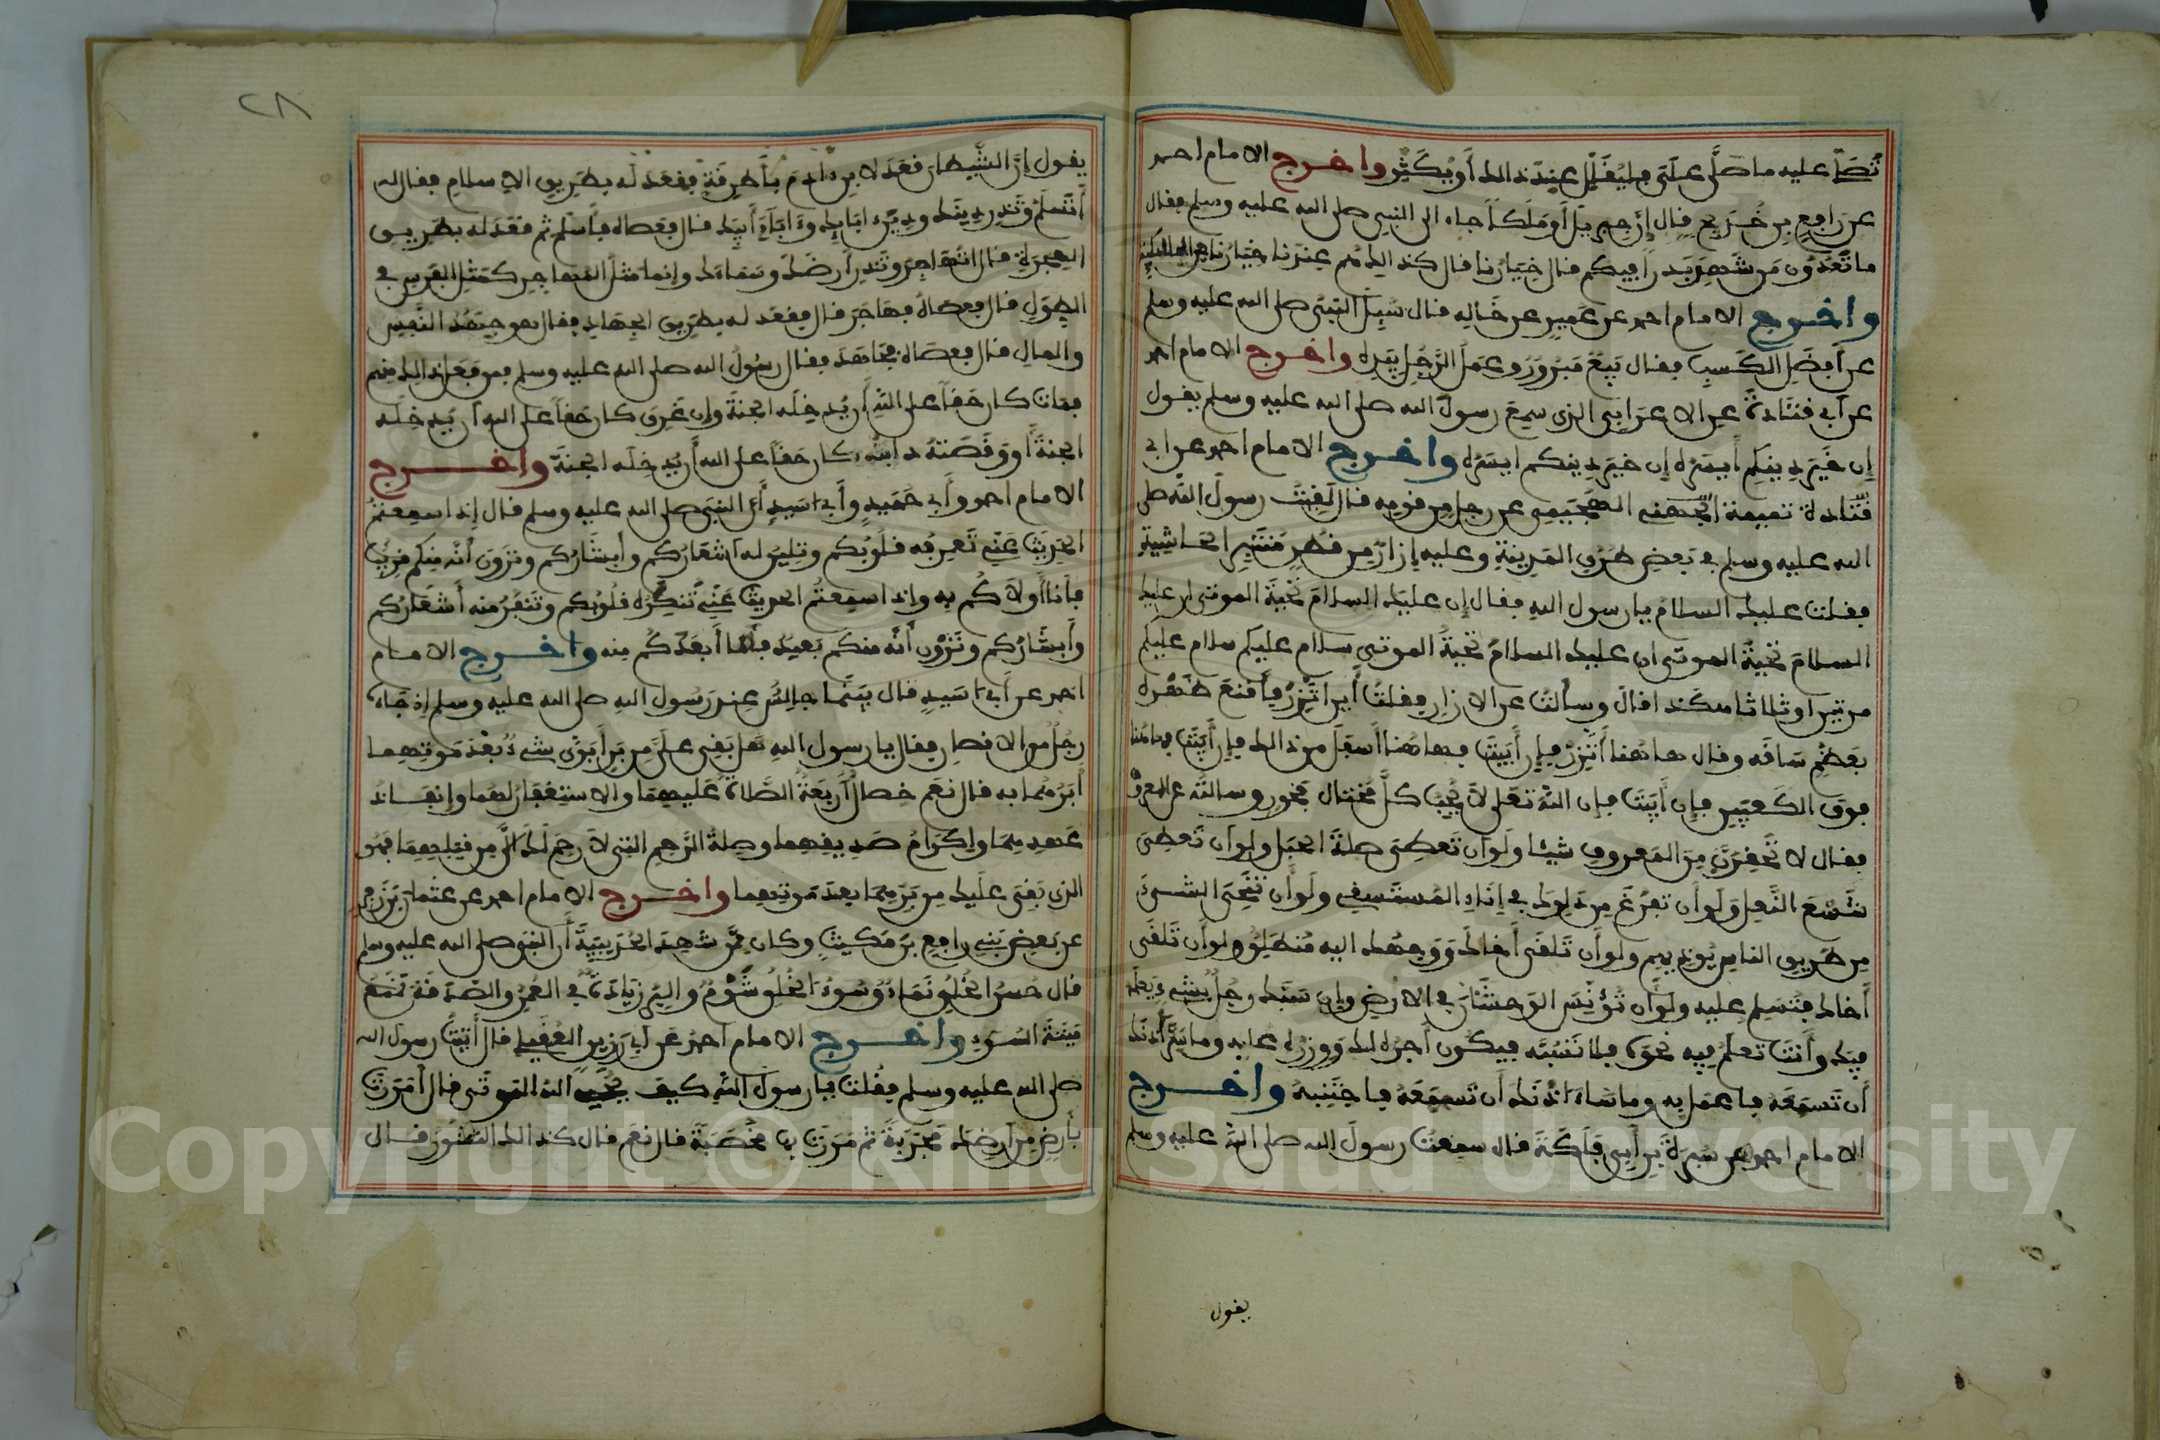 تصل عليه ما صلى علي فليقلل عند ذلك أو يكثر واخرج الامام احمد
عن رافع بن خديج قال إن جبريل أو ملكا جاء الى النبي صلى الله عليه وسلم فقال
ما تعدون من شهد بدرا فيكم قال خيارنا قال كذلك هم عندنا خيارنا من الملائكة
واخرج الامام احمد عن عمير عن خاله قال سئل النبي صلى الله عليه وسلم
عن أفضل الكسب فقال بيع مبرور وعمل الرجل بيده واخرج الامام احمد
عن أبي قتادة عن الاعرابي الذي سمع رسول الله صلى الله عليه وسلم يقول
إن خير دينكم أيسره إن خير دينكم ايسره واخرج الامام احمد عن ابي
تميمة الهجيمي عن رجل من قومه قال لقيت رسول الله صلى
الله عليه وسلم في بعض طرق المدينة وعليه إزار من قطر منتثر الحاشية
فقلت عليك السلام يا رسول الله فقال إن عليك السلام تحية الموتى ان عليك
السلام تحية الموتى ان عليك السلام تحية الموتى سلام عليكم سلام عليكم
مرتين او ثلاثا هكذا قال وسألت عن الازار فقلت أين أتزر فأقنع ظهره
بعظم ساقه وقال هاهنا أتزر فإن أبيت فهاهنا أسفل من ذلك فإن أبيت فهاهنا
فوق الكعبين فإن أبيت فإن الله تعلى لا يحب كل مختال فخور وسالته عن المعروف
فقال لا تحقرن من المعروف شيئا ولو أن تعطي صلة الحبل ولو أن تعطي
شسع النعل ولو أن تفرغ من دلوك في إناء المستسقي ولو أن تنحي الشيء
من طريق الناس يوذيهم ولو أن تلقى أخاك ووجهك اليه منطلق ولو أن تلقى
أخاك فتسلم عليه ولو أن تؤنس الوحشان في الارض وإن سبك رجل بشيء يعلمه
فيك وأنت تعلم فيه نحوه فلا تسبه فيكون أجره لك ووزره عليه وما سر أذنك
أن تسمعه فاعمل به وما ساء اذنك أن تسمعه فاجتنبه واخرج
الامام احمد عن سبرة بن أبي فاكه قال سمعت رسول الله صلى الله عليه وسلم
يقول
٢٨
يقول إن الشيطان قعد لابن ءادم بأطرقة فقعد له بطريق الاسلام فقال له
أتسلم وتذر دينك ودين ءابائك وءاباء أبيك قال فعصاه فأسلم ثم قعد له بطريق
الهجرة فقال اتهاجر وتذر أرضك وسماءك وإنما مثل المهاجر كمثل الفرس في
الطول قال فعصاه فهاجر قال فقعد له بطريق الجهاد فقال هو جهد النفس
والمال قال فعصاه فجاهد فقال رسول الله صلى الله عليه وسلم فمن فعل ذلك منهم
فمات كان حقا على الله أن يدخله الجنة وإن غرق كان حقا على الله ان يدخله
الجنة أو وقصته دابته كان حقا على الله أن يدخله الجنة واخرج
الامام احمد وأبي حميد وأبي اسيد أن النبي صلى الله عليه وسلم قال إذا سمعتم
الحديث عني تعرفه قلوبكم وتلين له اشعاركم وأبشاركم وترون أنه منكم قريب
فأنا أولاكم به وإذا سمعتم الحديث عني تنكره قلوبكم وتنفر منه أشعاركم
وأبشاركم وترون أنه منكم بعيد فأنا أبعدكم منه واخرج الامام
احمد عن أبي اسيد قال بينما جالس عند رسول الله صلى الله عليه وسلم إذ جاءه
رجل من الانصار فقال يا رسول الله هل بقي علي من بر أبوي شيء بعد موتهما
أبرهما به قال نعم خصال أربعة الصلاة عليهما والاستغفار لهما وإنفاذ
عهدهما وإكرام صديقهما وصلة الرحم التي لا رحم لك إلا من قبلهما فهو
الذي بقي عليك من برهما بعد موتهما واخرج الامام احمد عن عثمان بن زفر
عن بعض بني رافع بن مكيث وكان ممن شهد الحديبية أن النبي صلى الله عليه وسلم
قال حسن الخلق نماء وسوء الخلق شؤم والبر زيادة في العمر والصدقة تمنع
ميتة السوء واخرج الامام احمد عن أبي رزين العقيلي قال أتيت رسول الله
صلى الله عليه وسلم فقلت يا رسول الله كيف يحيي الله الموتى قال أمررت
بأرض من أرضك مجدبة ثم مررت بها مخصبة قال نعم قال كذلك النشور قال